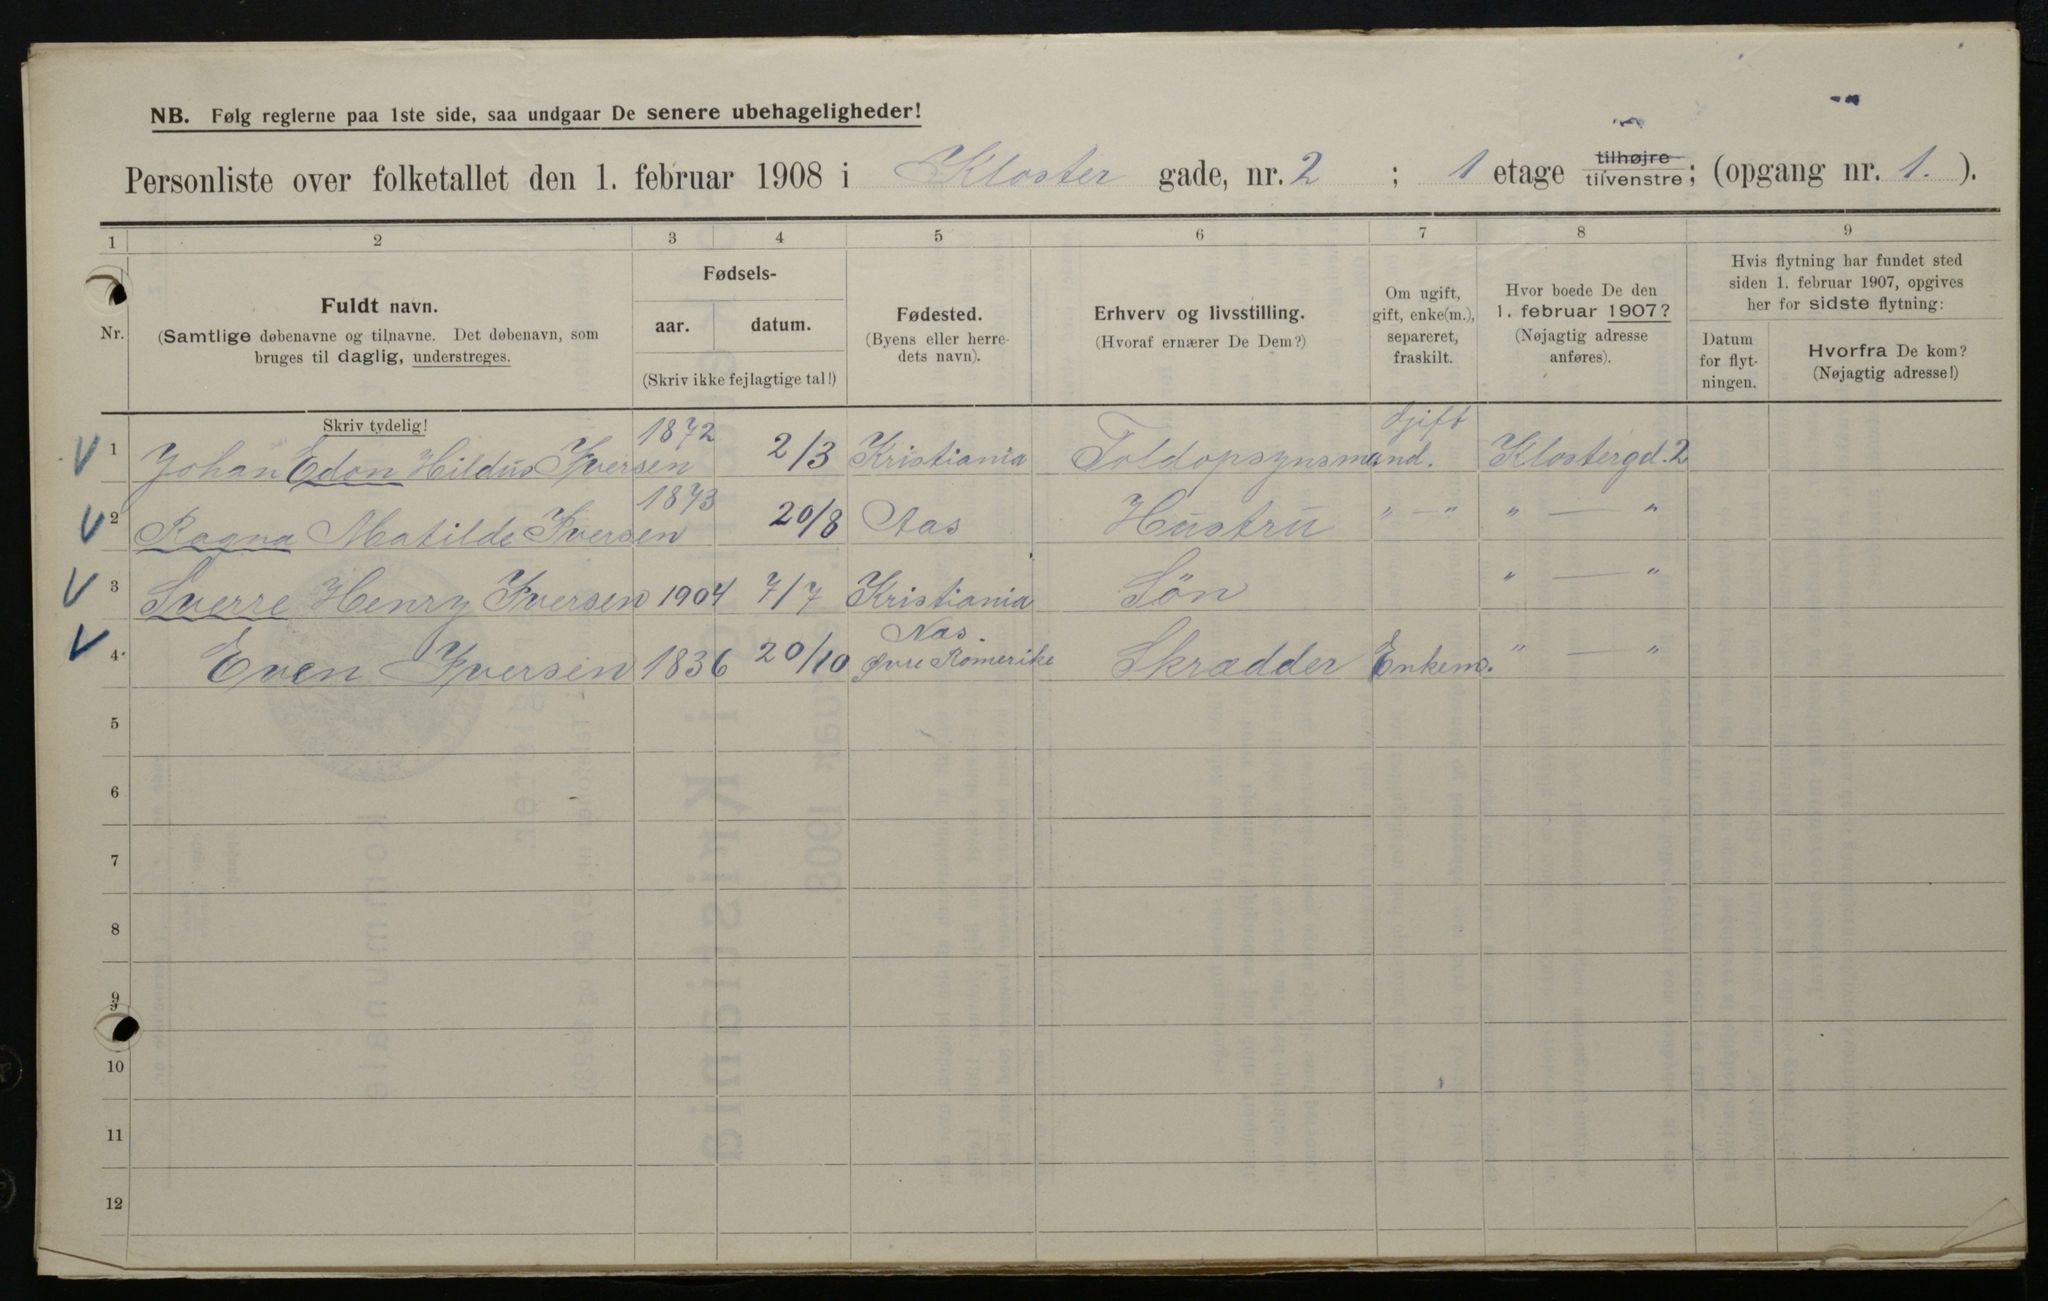 NB. Følg reglerne paa 1ste side, saa undgaar De senere ubehageligheder!
Personliste over folketallet den 1. februar 1908 i Kloster gade, nr. 2 ; 1 etage tilhøjre tilvenstre; (opgang nr. 1. ).
1 2 3 4 5 6 7 8 9
Nr.
Fuldt navn.
(Samtlige døbenavne og tilnavne. Det døbenavn, som
bruges til daglig, understreges.
Skriv tydelig!
Fødsels-
aar. datum.
(Skriv ikke fejlagtige tal!)
Fødested.
(Byens eller herre-
dets navn).
Erhverv og livsstilling.
(Hvoraf ernærer De Dem?)
Om ugift,
gift, enke(m.),
separeret,
fraskilt.
Hvor boede De den
1. februar 1907?
(Nøjagtig adresse
anføres).
Hvis flytning har fundet sted
siden 1. februar 1907, opgives
her for sidste flytning:
Datum
for flyt-
ningen.
Hvorfra De kom?
(Nøjagtig adresse!)
1 Johan Edon Hildus Iversen 1872 2/3 Kristiania Toldopsynsmand. Gift Klostergd. 2
2 Ragna Matilde Iversen 1873 20/8 Aas Hustru " — " " — "
3 Sverre Henry Iversen 1904 7/7 Kristiania Sön " — "
4 Even Iversen 1836 20/10 Nas. Øvre Romerike Skrædder Enkem. " — "
5
6
7
8
9
10
11
12